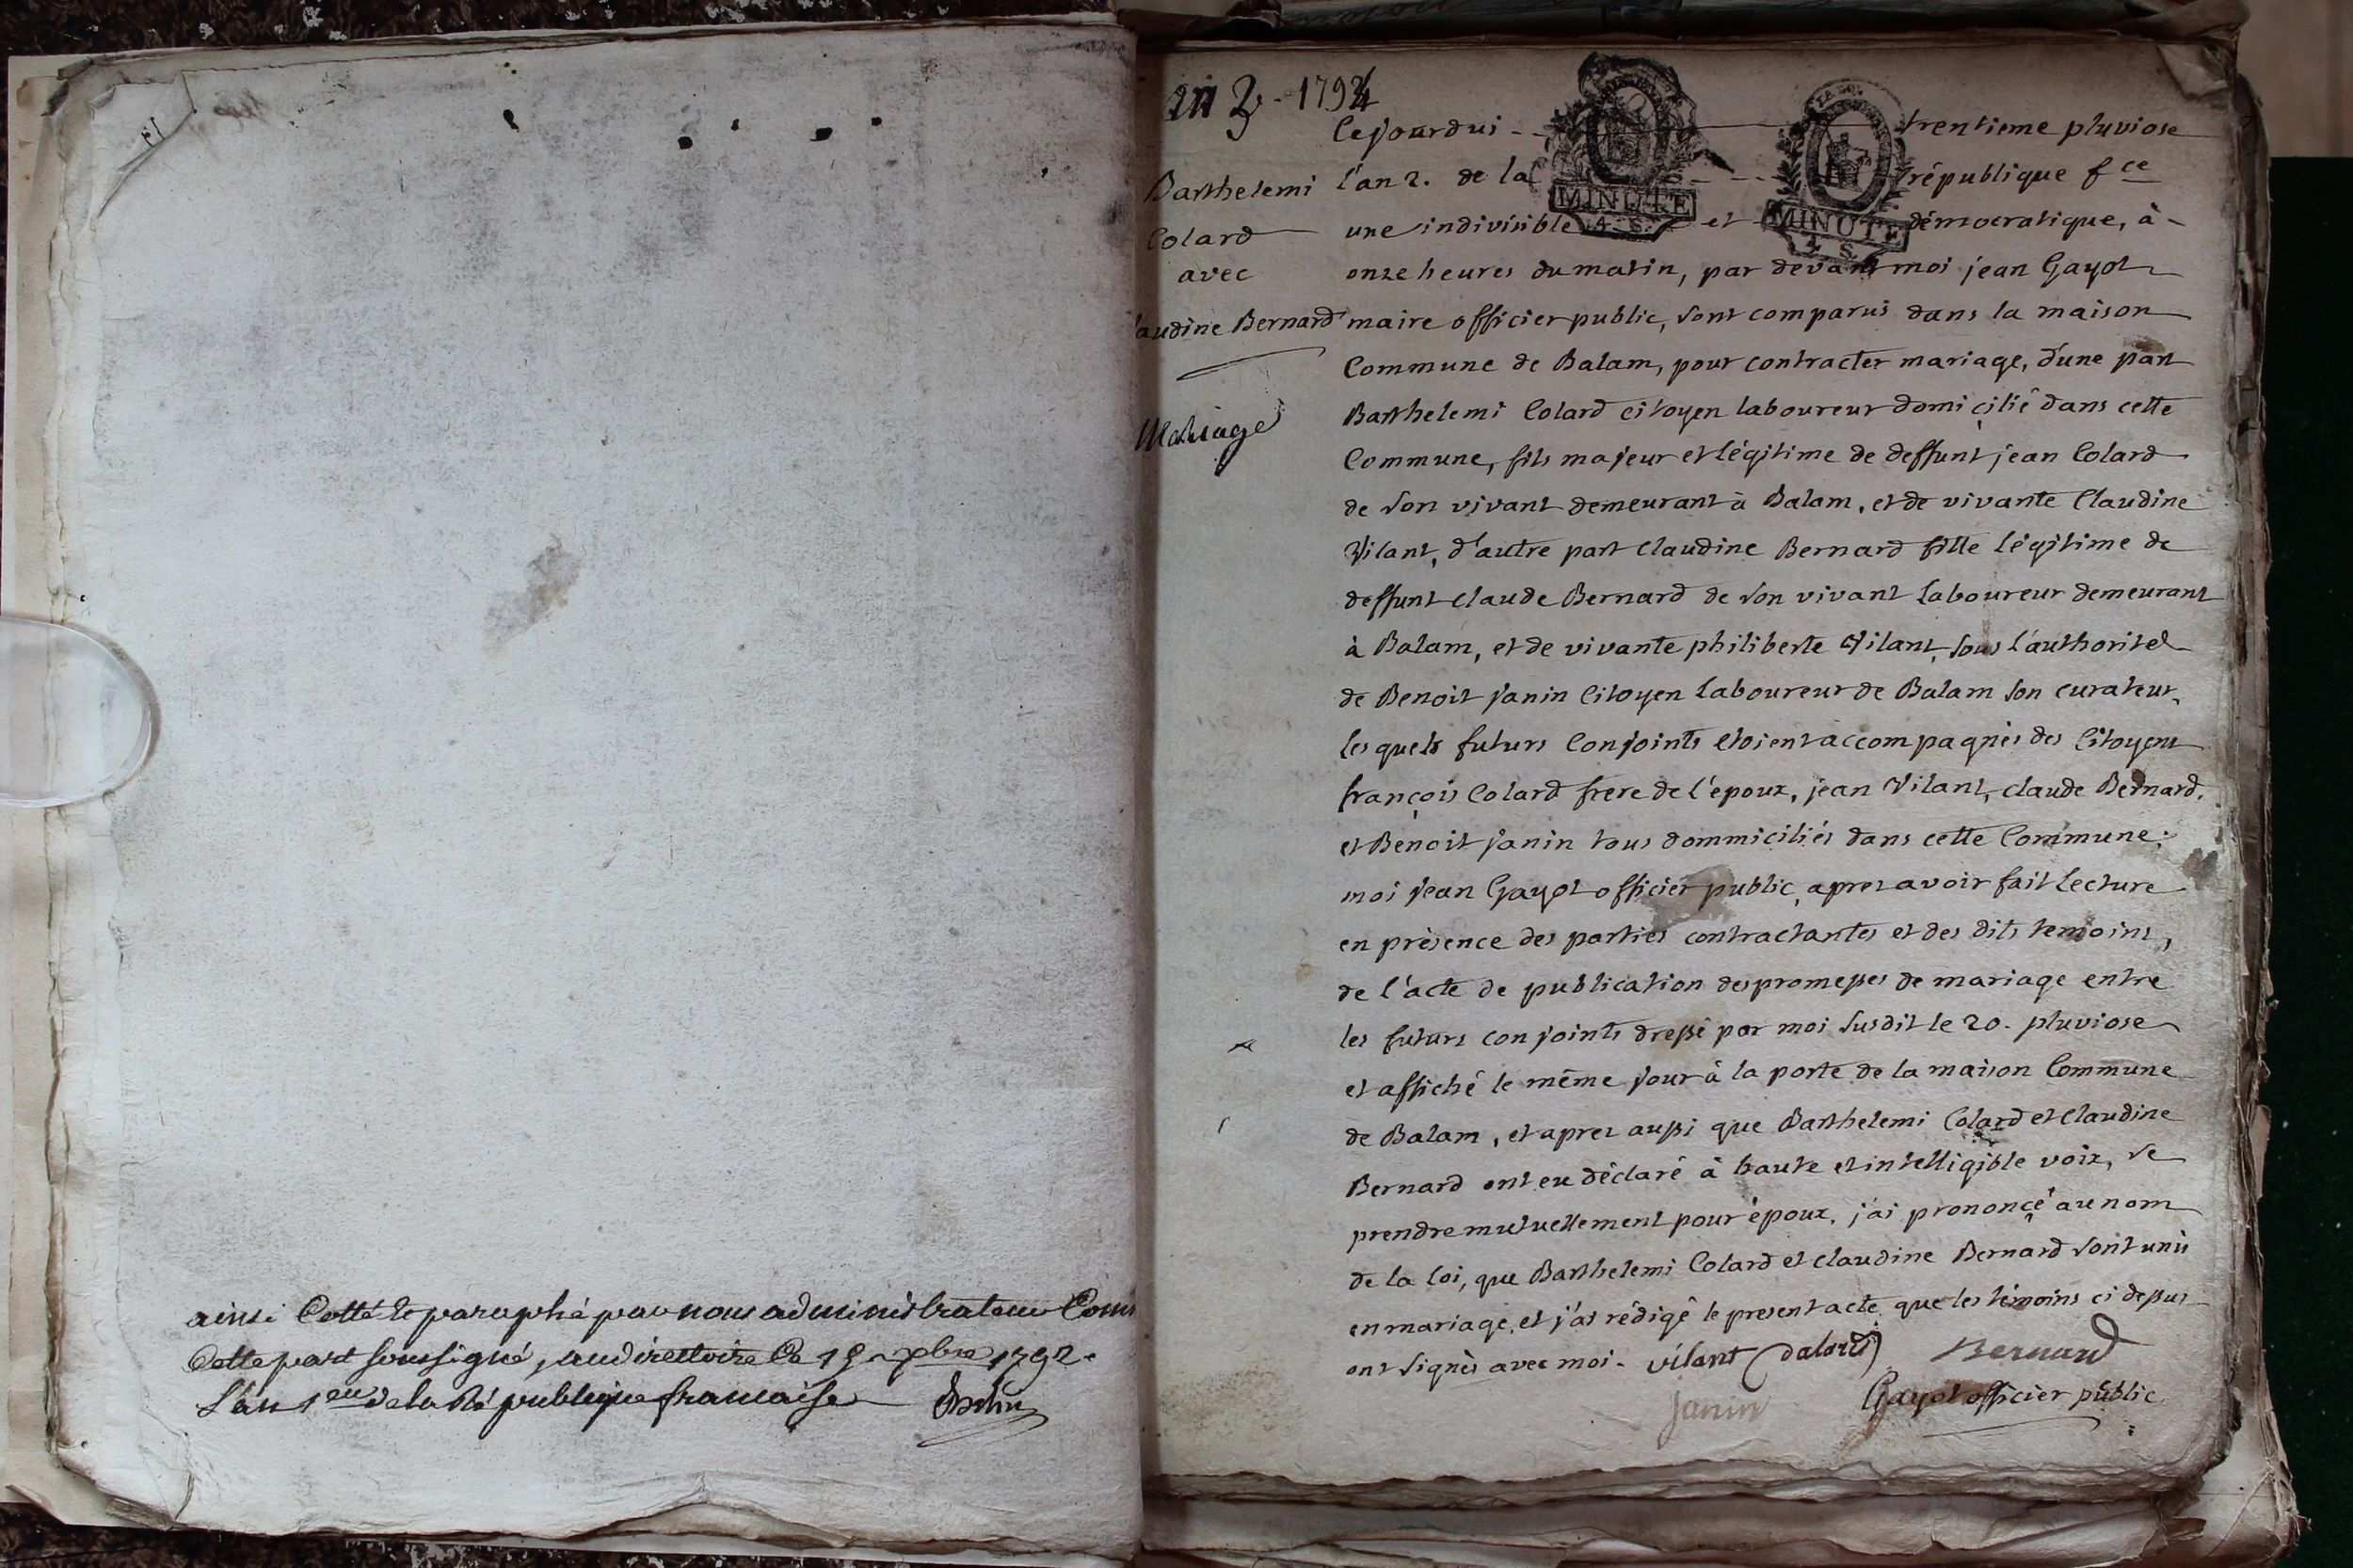 ainsi Cotté et paraphé par nous administrateur
Cette part soussigné, au directoire Ce 7bre 1792.
L'an 1er de la République francaise
an 2 - 1794
Barthelemi
Colard
avec
audine Bernard
Mariage
Cejourdui - trentieme pluviose
l'an 2. de la république fce
une indivisible et démocratique, à -
onze heures du matin, par devant moi jean Gayot
maire officier public, sont comparus dans la maison
Commune de Balam, pour contracter mariage, d'une part
Barthelemi Colard citoyen laboureur domicilié dans cette
Commune, fils majeur et légitime de deffunt jean Colard
de son vivant demeurant à Balam, et de vivante Claudine
Vilant, d'autre part Claudine Bernard fille légitime de
deffunt claude Bernard de son vivant laboureur demeurant
à Balam, et de vivante philiberte Vilant, sous l'authorité
de Benoit janin Citoyen laboureur de Balam son curateur,
les quels futurs Conjoints étoient accompagnés des Citoyens
françois Colard frere de l'époux, jean Vilant, claude Bernard,
et Benoit janin tous dommiciliés dans cette Commune;
moi jean Gayot officier public, aprez avoir fait lecture
en présence des parties contractantes et des dits temoins,
de l'acte de publication des promesses de mariage entre
les futurs conjoints dressé par moi susdit le 20. pluviose
et affiché le même jour à la porte de la maison Commune
de Balam, et aprez aussi que Barthelemi Colard et claudine
Bernard ont eu déclaré à haute et intelligible voix, se
prendre mutuellement pour époux, j'ai prononcé au nom
de la loi, que Barthelemi Colard et claudine Bernard sont unis
en mariage, et j'ai rédigé le present acte que les témoins ci dessus
ont signés avec moi. vilant Bernard
Janin Gayot officier public
MINUTE
4. S.
MINUTE
4. S.